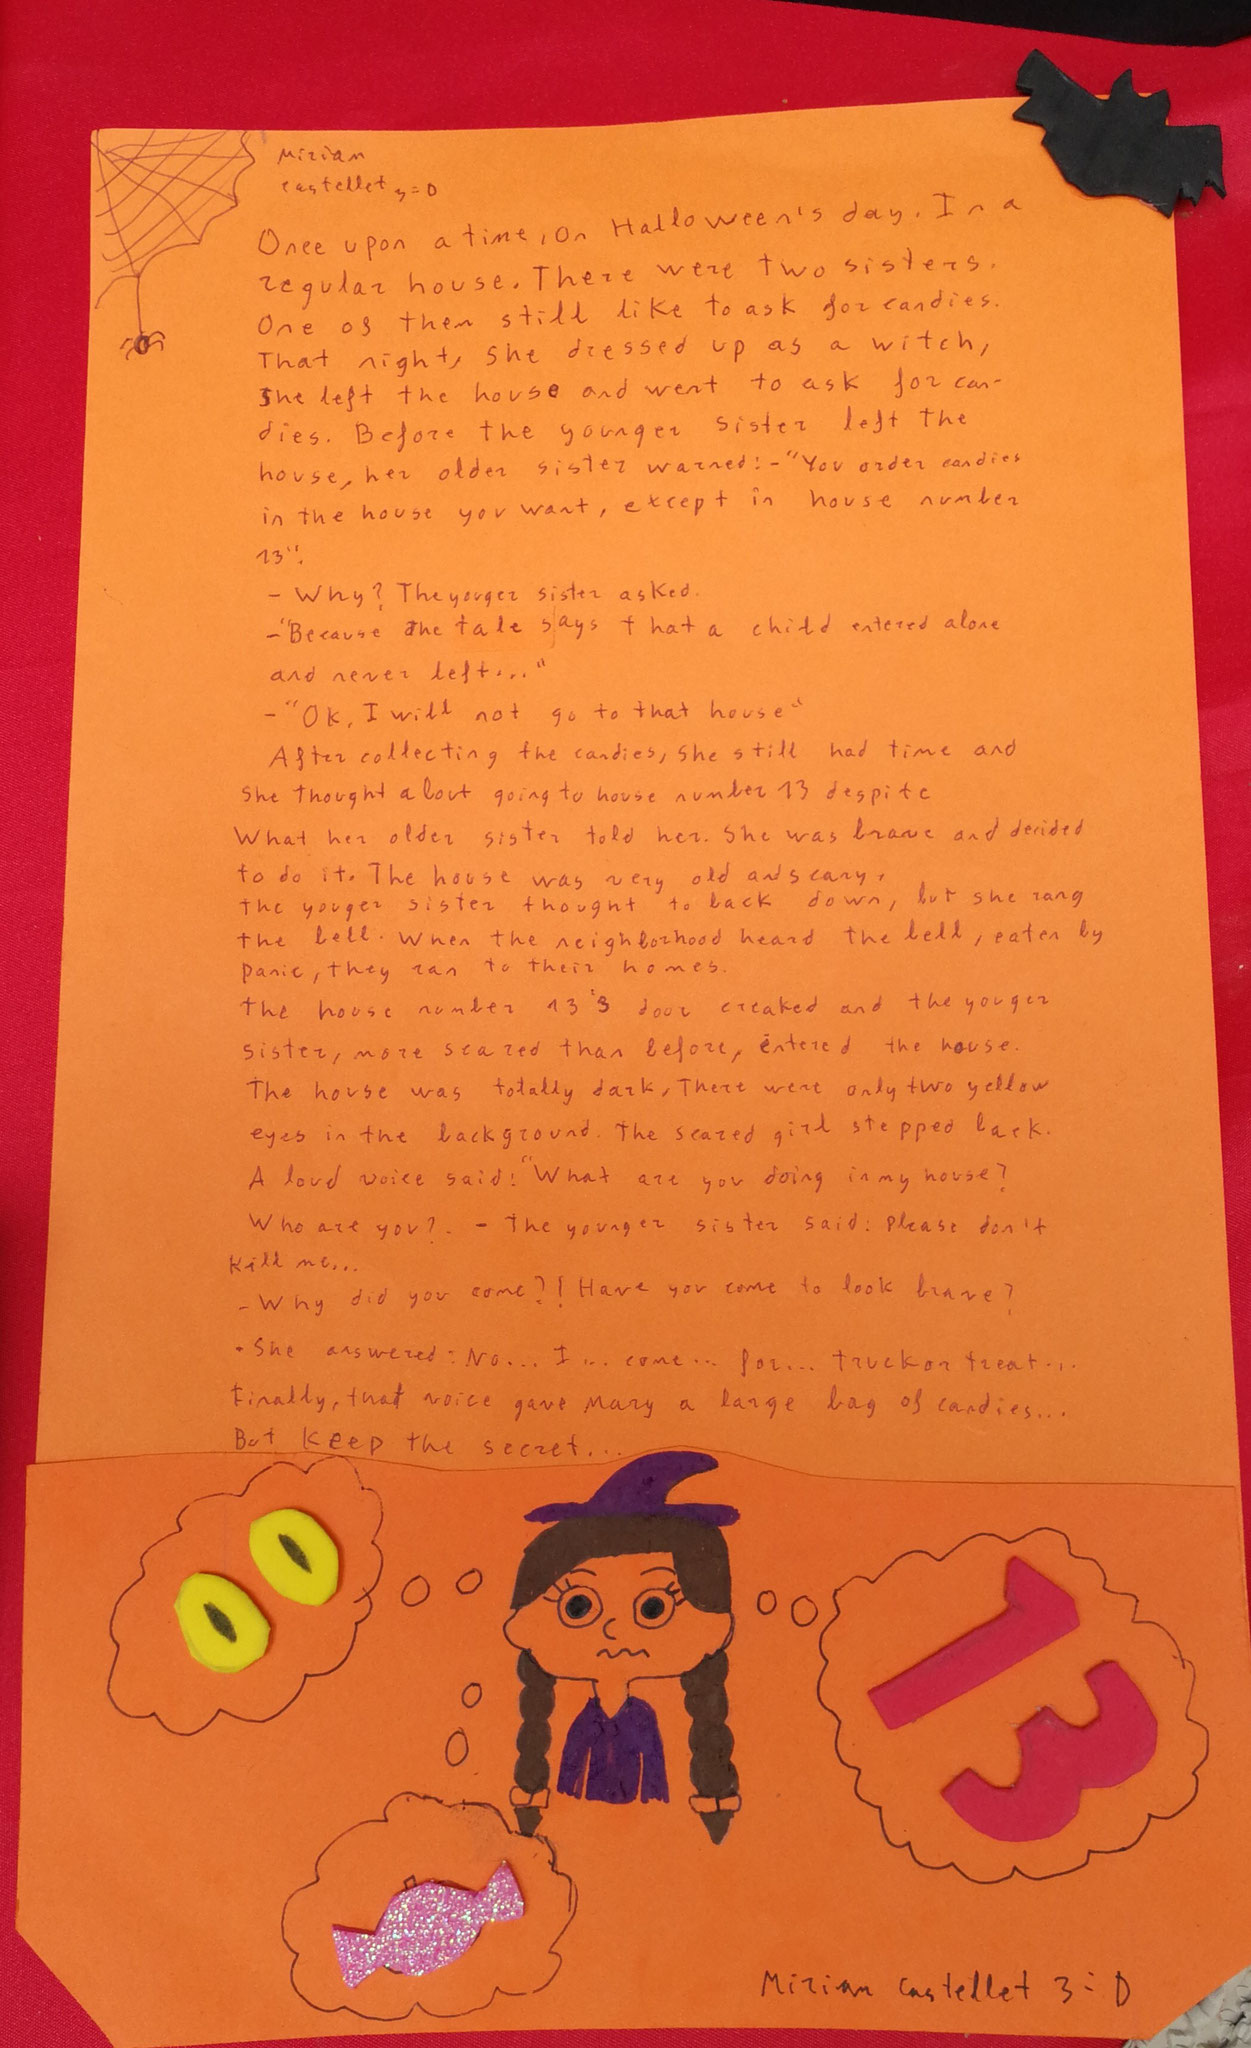 Mirian
Castellet 3=D
Once upon a time, on Halloween's day. In a
regular house. There were two sisters.
One of them still like to ask for candies.
That night, she dressed up as a witch,
She left the house and went to ask for can-
dies. Before the younger sister left the
house, her older sister warned:-"You order candies
in the house you want, except in house number
13".
- Why? The youger sister asked.
-"Because the tale says that a child entered alone
and never left..."
-"Ok, I will not go to that house"
After collecting the candies, she still had time and
she thought about going to house number 13 despite
What her older sister told her. She was brave and decided
to do it. The house was very old and scary,
the youger sister thought to back down, but she rang
the bell. When the neighborhood heard the bell, eaten by
panic, they ran to their homes.
the house number 13's door creaked and the youger
sister, more scared than before, entered the house.
The house was totally dark, There were only two yellow
eyes in the background. The scared girl stepped back.
A loud voice said: "What are you doing in my house?
Who are you?. - The younger sister said: Please don't
kill me...
- Why did you come?! Have you come to look brave?
• She answered: No... I... come... for... truck or treat...
Finally, that voice gave Mary a large bag of candies...
But keep the secret...
13
Mirian Castellet 3=D